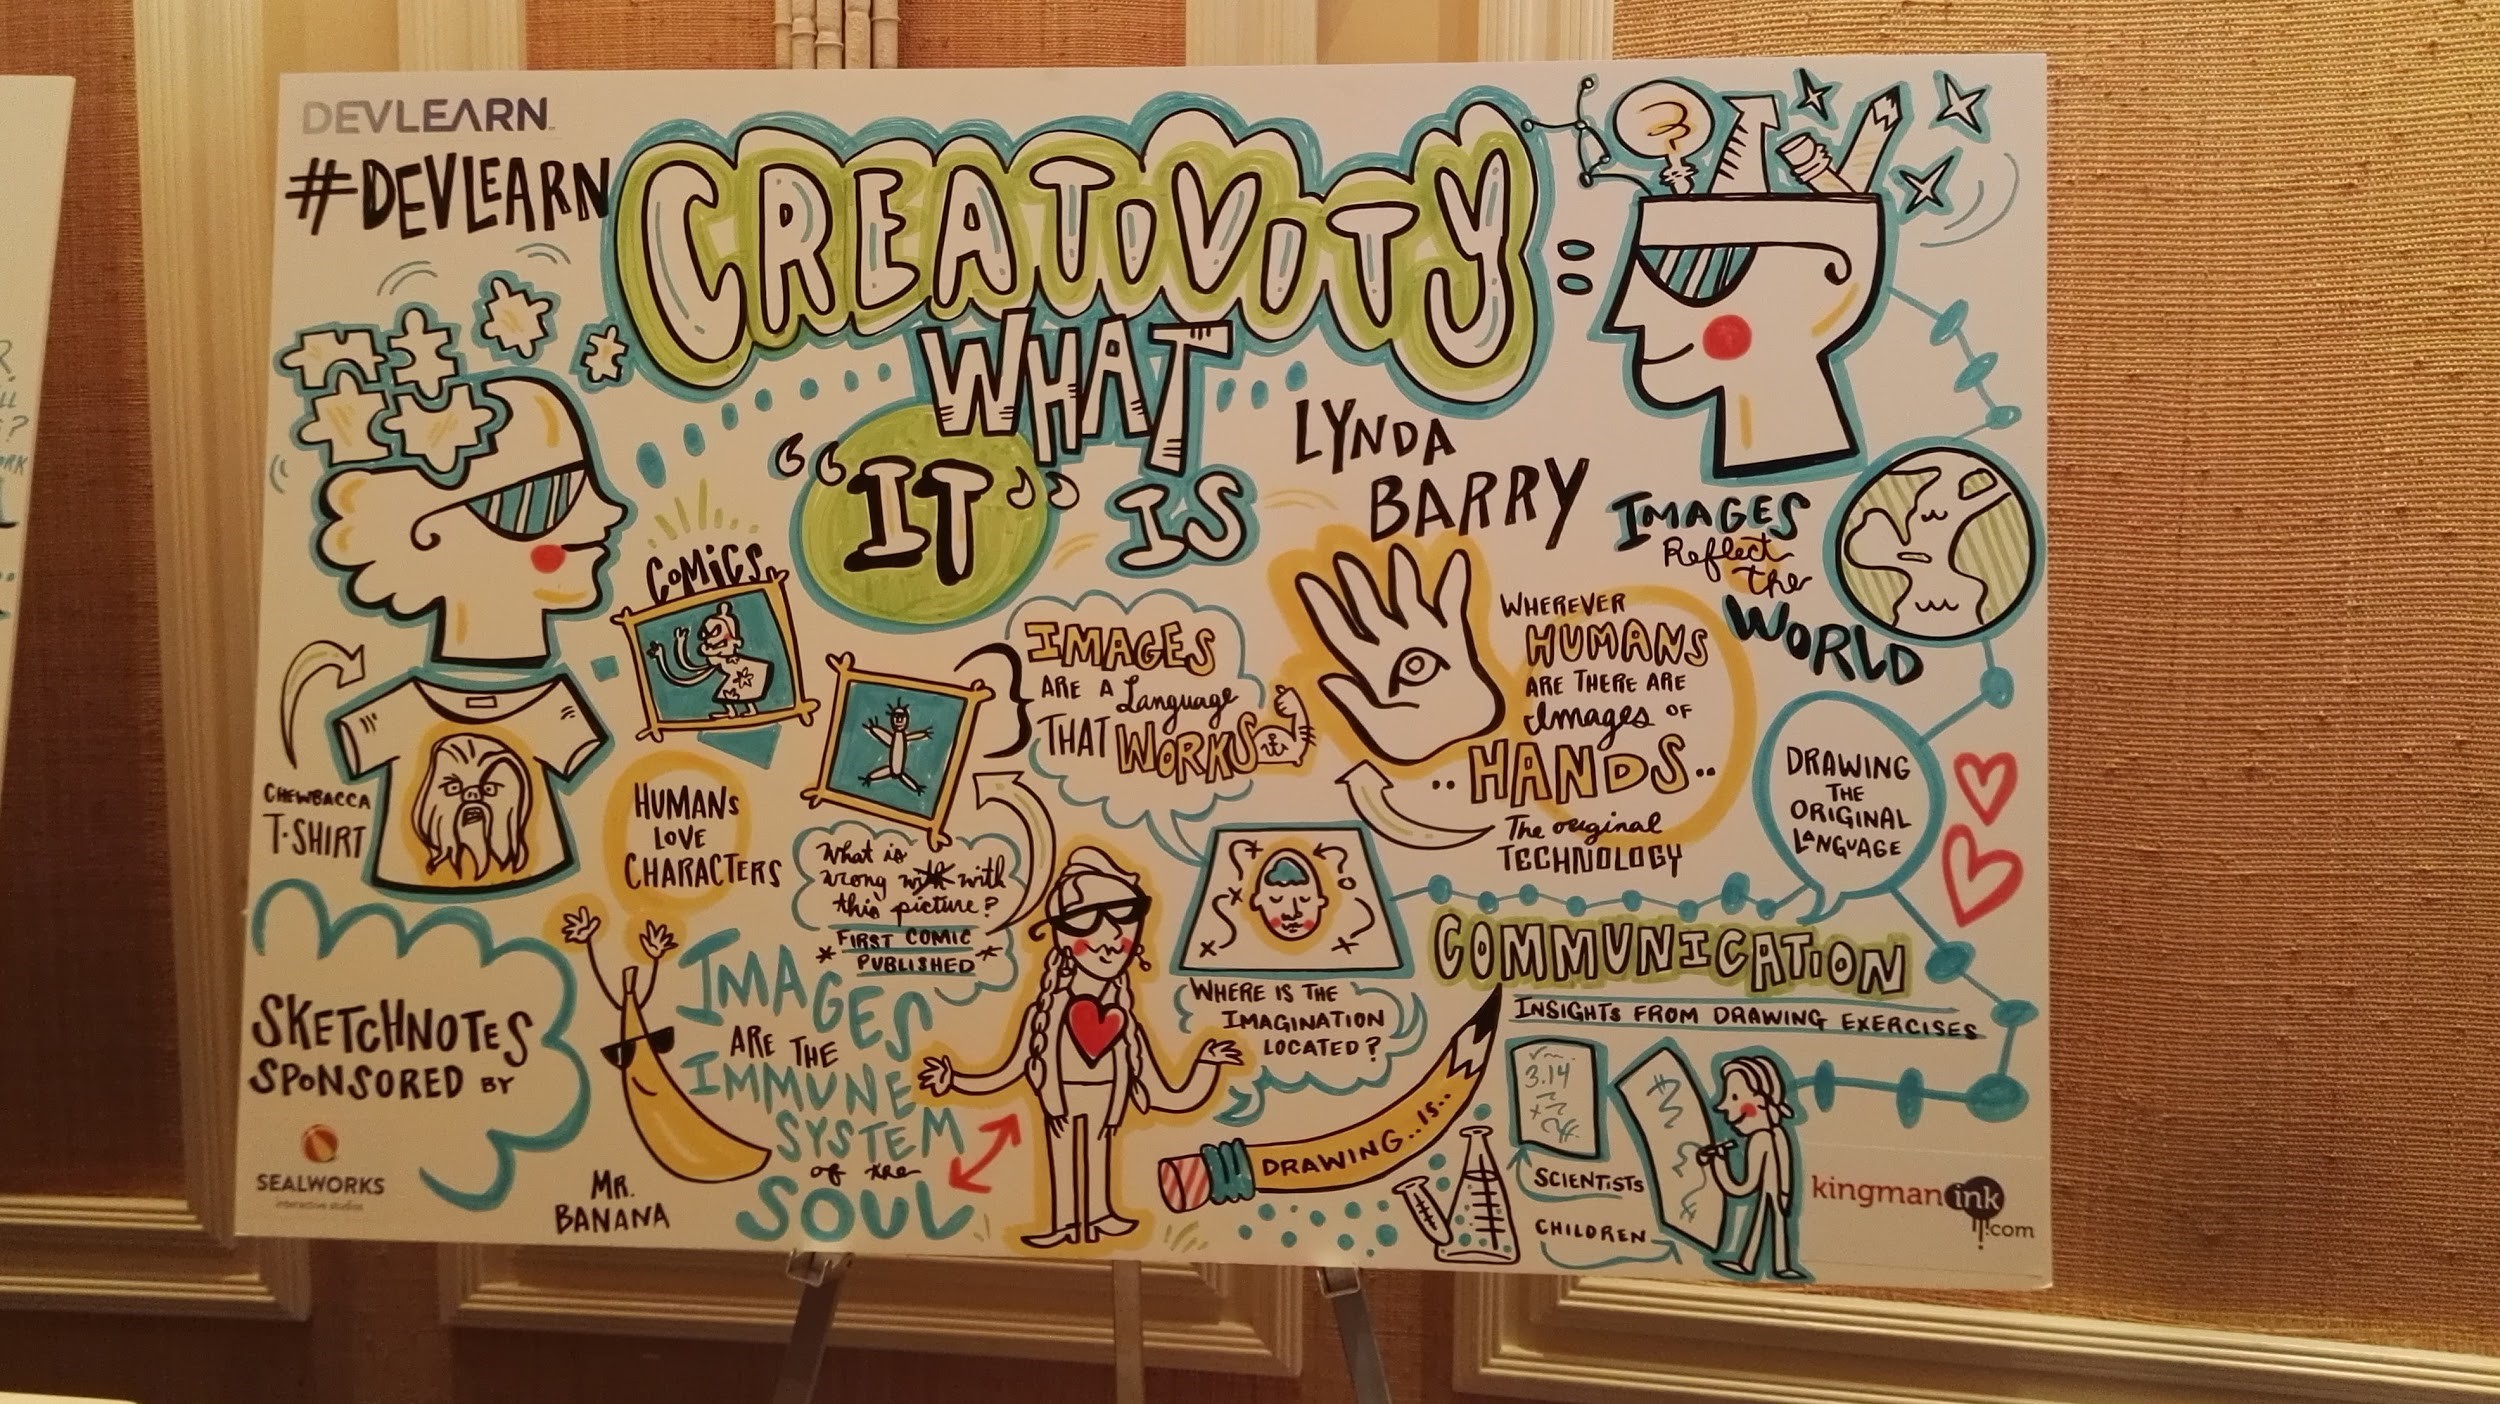 DEVLEARN
#DEVLEARN
CREATIVITY
WHAT
"IT" IS
LYNDA
BARRY
IMAGES
Reflect
the
WORLD
COMICS
IMAGES
ARE A Language
THAT WORKS
WHEREVER
HUMANS
ARE THERE ARE
Images OF
..HANDS..
The original
TECHNOLOGY
DRAWING
THE
ORIGINAL
LANGUAGE
CHEWBACCA
T-SHIRT
HUMANS
LOVE
CHARACTERS
What is
wrong with
this picture?
*FIRST COMIC
PUBLISHED*
IMAGES
ARE THE
IMMUNE
SYSTEM
of the
SOUL
MR.
BANANA
WHERE IS THE
IMAGINATION
LOCATED?
COMMUNICATION
INSIGHTS FROM DRAWING EXERCISES
DRAWING..IS..
3.14
SCIENTISTS
CHILDREN
SKETCHNOTES
SPONSORED BY
SEALWORKS
interactive studios
kingmanink
.com